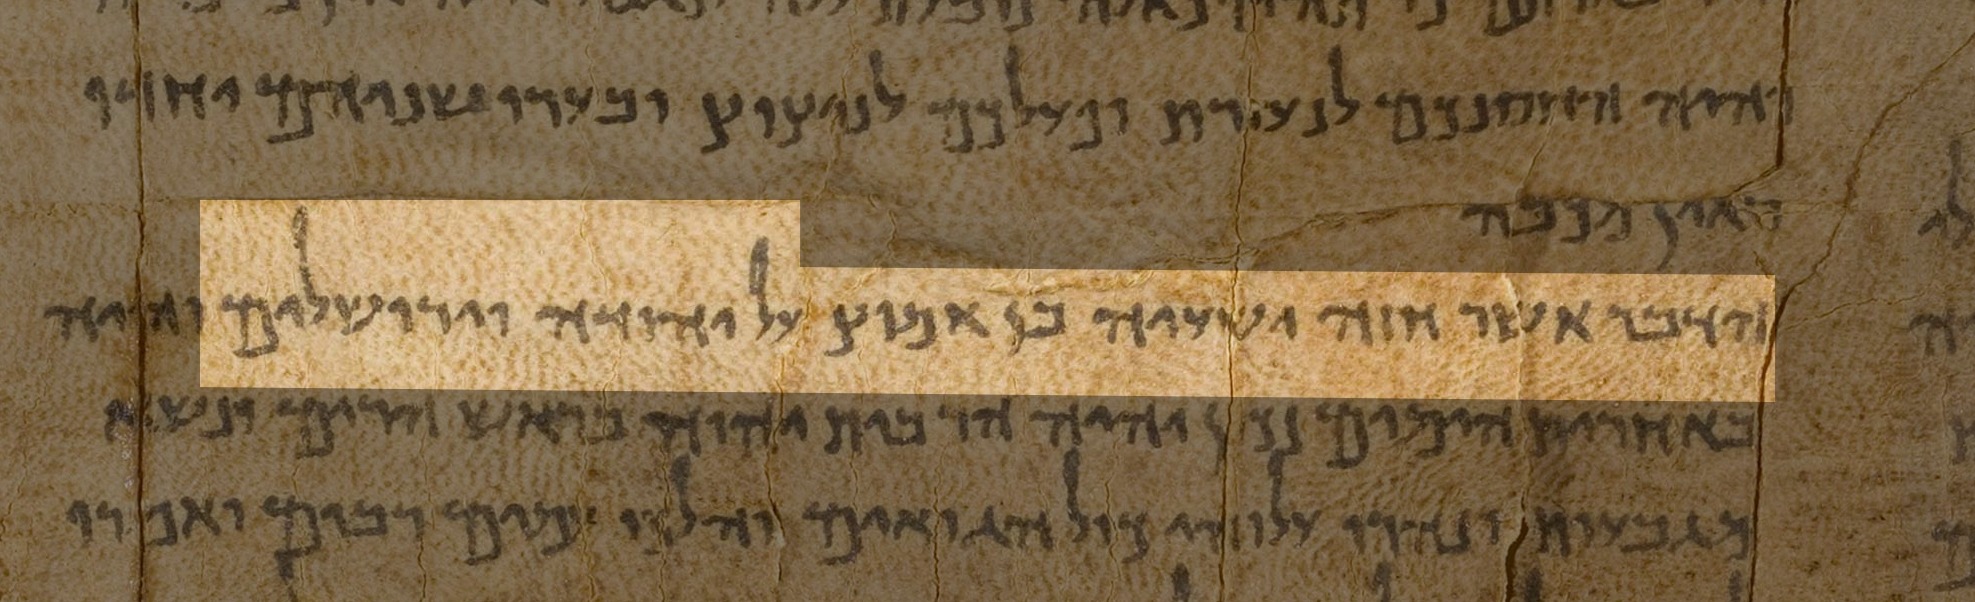 והיה החסנכם לנעורת ופעלכם לניצוץ ובערו שניהם יחדיו
ואין מכבה
הדבר אשר חזה ישעיה בן אמוץ על יהודה וירושלים והיה
באחרית הימים נכון יהיה הר בית יהוה בראש הרים ונשא
מגבעות ונהרו עלוהי כול הגואים והלכו עמים רבים ואמרו